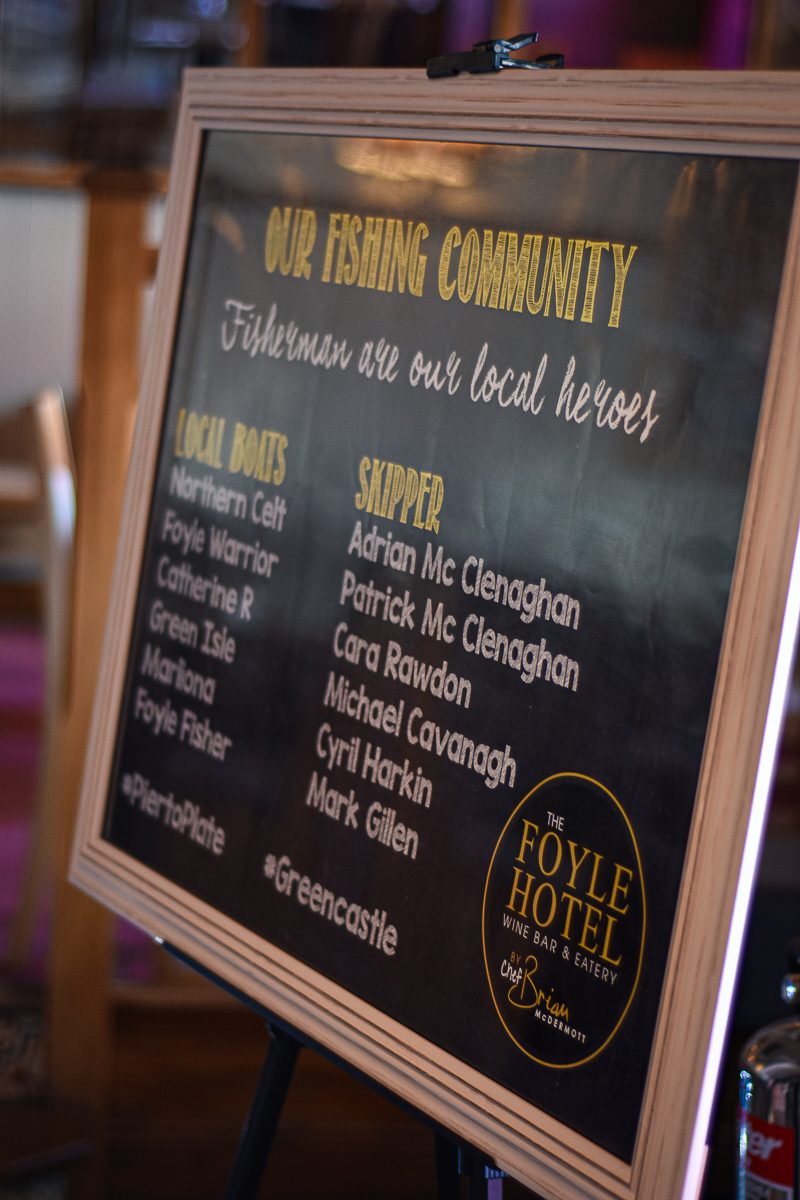 OUR FISHING COMMUNITY
Fisherman are our local heroes
LOCAL BOATS
Northern Celt
Foyle Warrior
Catherine R
Green Isle
Marliona
Foyle Fisher
#PiertoPlate
SKIPPER
Adrian Mc Clenaghan
Patrick Mc Clenaghan
Cara Rawdon
Michael Cavanagh
Cyril Harkin
Mark Gillen
#Greencastle
THE
FOYLE
HOTEL
WINE BAR & EATERY
BY
Chef Brian
McDERMOTT